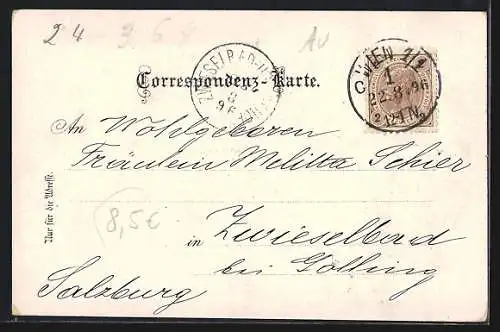 2 4 3 6 x Au
Correspondenz-Karte.
WIEN 1/1
1
22.8.96
C
An Wohlgeboren
Fräulein Melitta Schier
Nur für die Adresse.
8,5€
in Zwieselbad
bei Golling
Salzburg